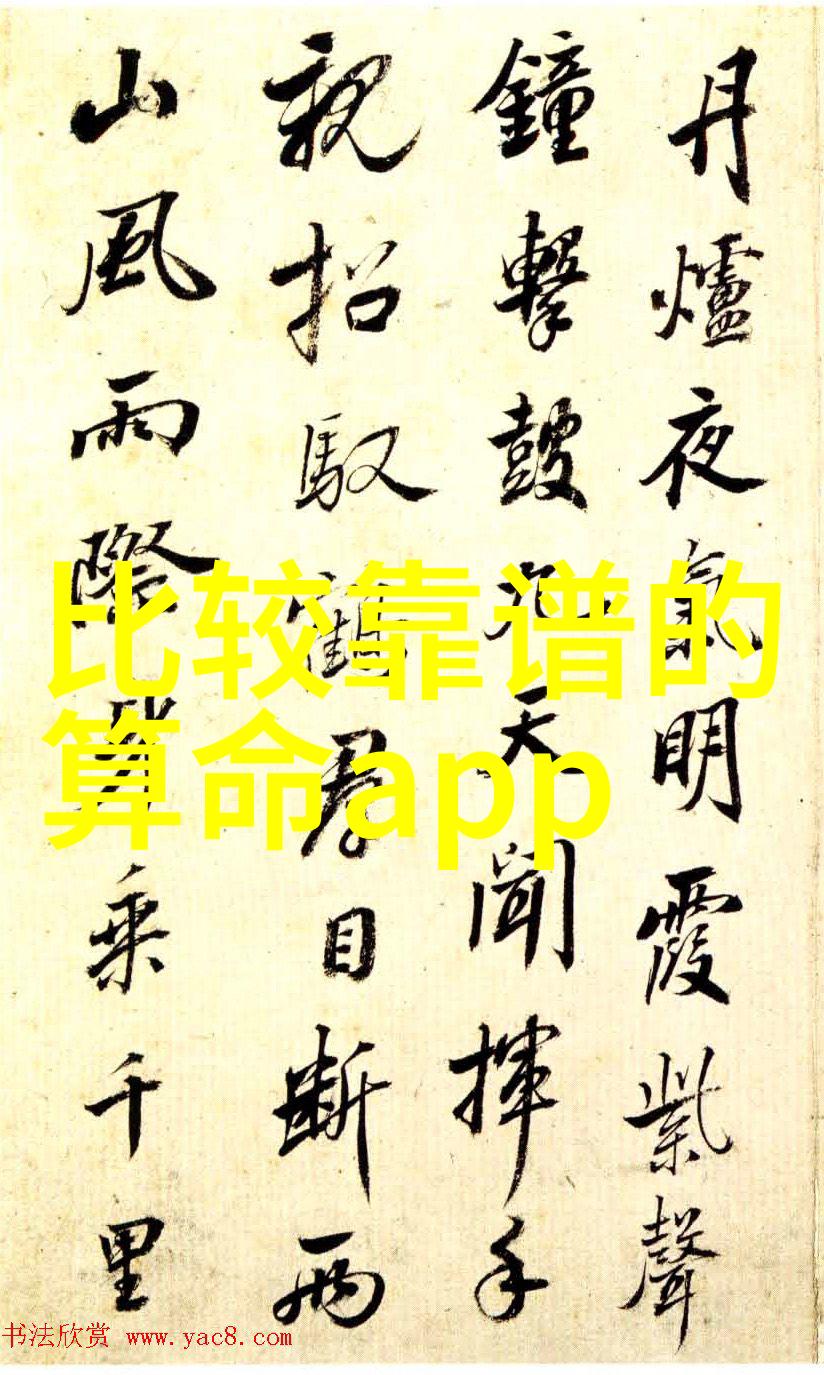 丹爐夜氣明霞紫聲
鐘擊鼓天聞揮手
親招馭鶴君目斷兩
山風雨際乘千里
比较靠谱的
算命app
书法欣赏 www.yac8.com